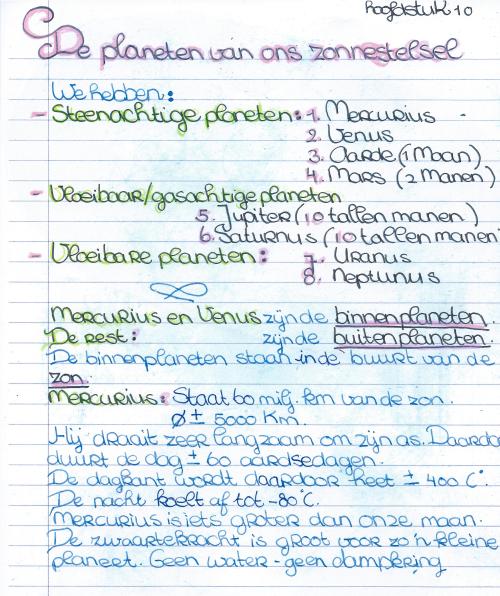 Hoofdstuk 10
De planeten van ons zonnestelsel
We hebben:
- Steenachtige planeten: 1. Mercurius
2. Venus
3. Aarde (1 Maan)
4. Mars (2 Manen)
- Vloeibaar/gasachtige planeten
5. Jupiter (10 tallen manen)
6. Saturnus (10 tallen manen
- Vloeibare planeten: 7. Uranus
8. Neptunus
Mercurius en Venus zijn de binnenplaneten.
De rest: zijn de buitenplaneten.
De binnenplaneten staan in de buurt van de
zon.
Mercurius: Staat 60 milj. km van de zon.
Ø ± 5000 Km.
Hij draait zeer langzaam om zijn as. Daardoo
duurt de dag ± 60 aardsedagen.
De dagkant wordt daardoor heet ± 400 C°.
De nacht koelt af tot -80°C.
Mercurius is iets groter dan onze maan.
De zwaartekracht is groot voor zo'n kleine
planeet. Geen water - geen dampkring